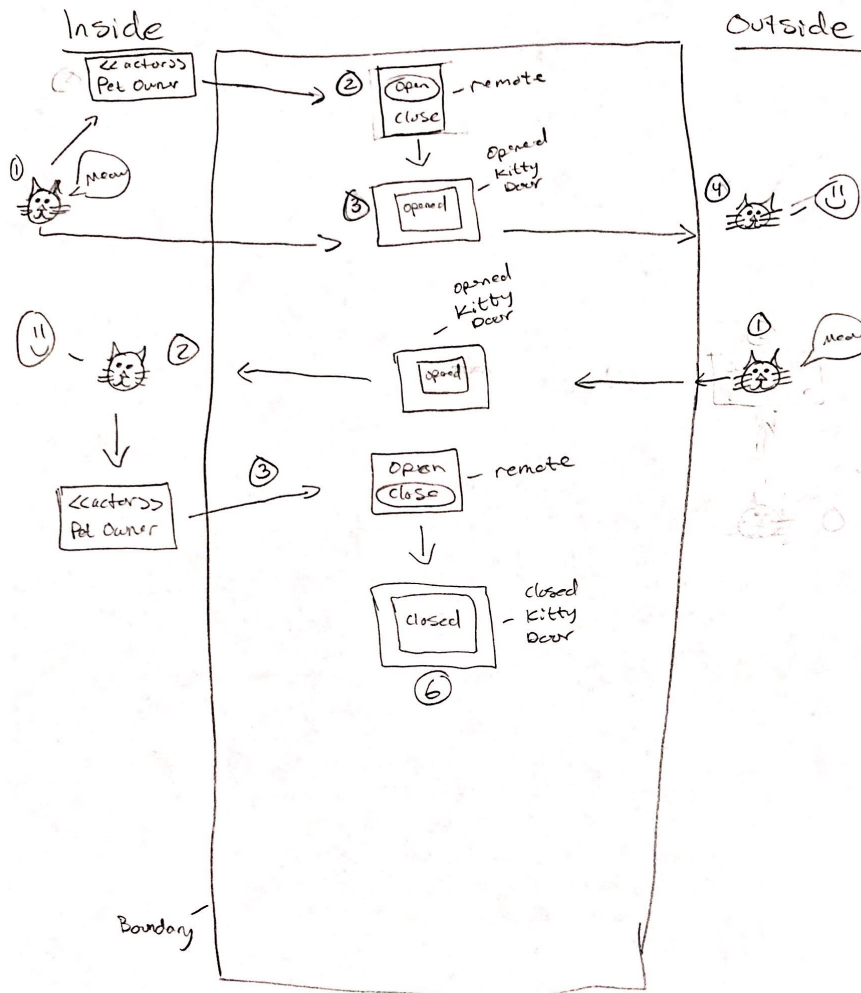 Inside
Outside
<<actor>>
Pet Owner
②
Open
Close
remote
①
Meow
③
Opened
Opened
Kitty
Door
④
opened
Kitty
Door
opened
②
①
Meow
③
Open
Close
remote
<<actor>>
Pet Owner
Closed
closed
Kitty
Door
⑥
Boundary